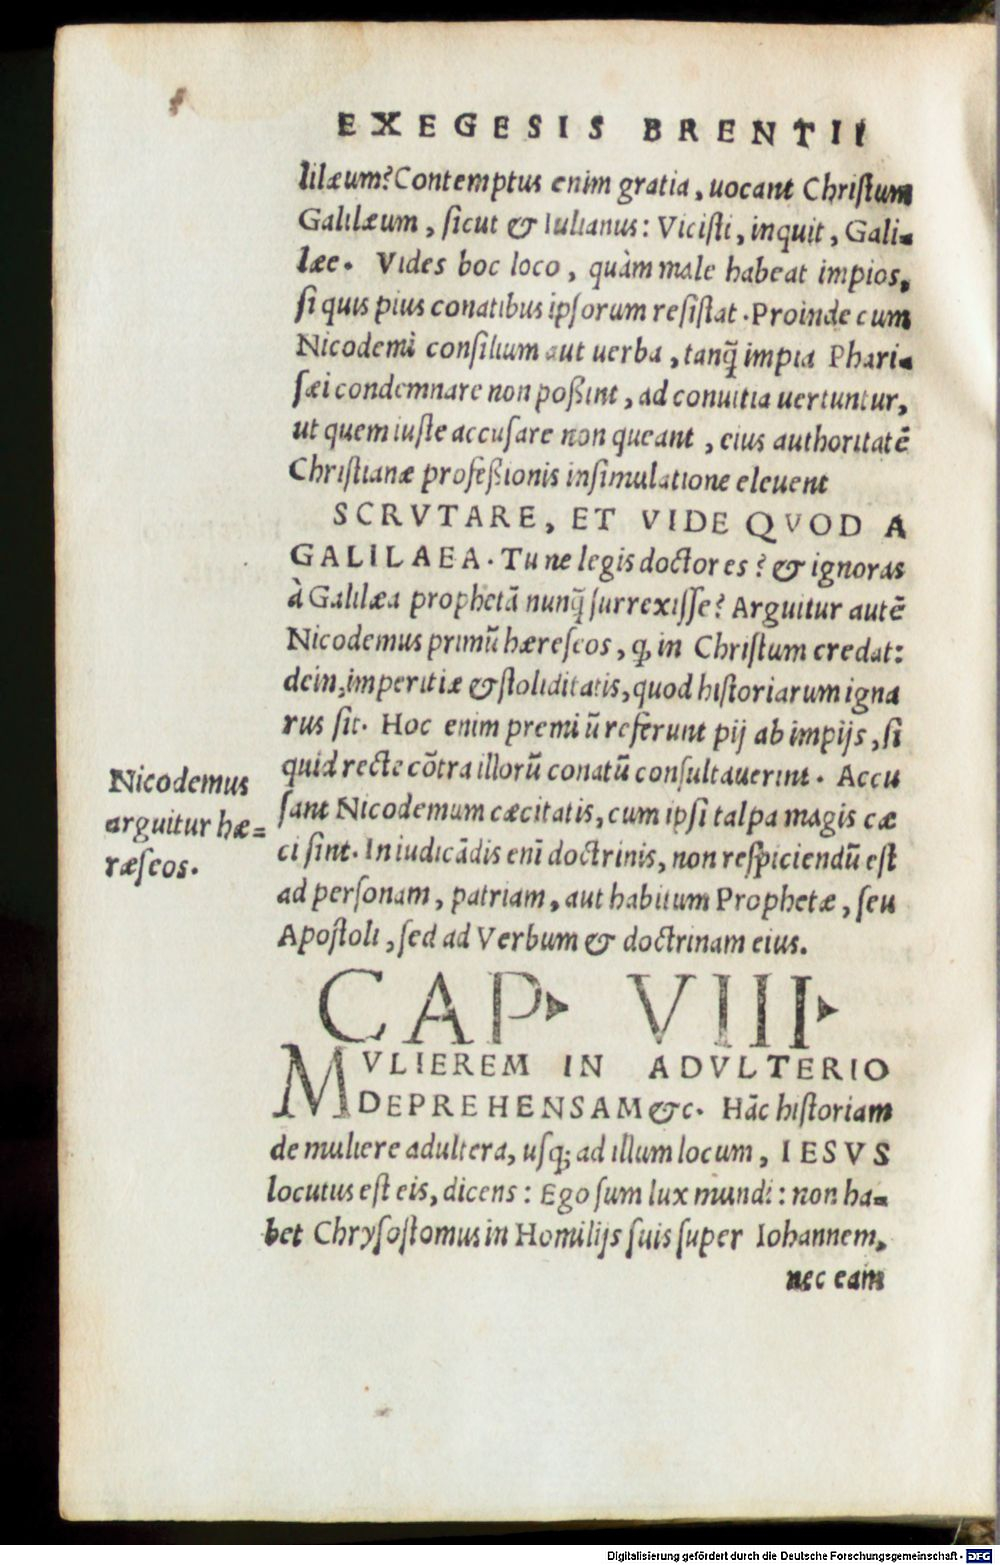 EXEGESIS BRENTII
lilæum? Contemptus enim gratia, uocant Christum
Galilæum, sicut & Iulianus: Vicisti, inquit, Gali-
læe. Vides hoc loco, quàm male habeat impios,
si quis pius conatibus ipsorum resistat. Proinde cum
Nicodemi consilium aut uerba, tanq̃ impia Phari-
sæi condemnare non poßint, ad conuitia uertuntur,
ut quem iuste accusare non queant, eius authoritatẽ
Christianæ profeßionis insimulatione eleuent
SCRVTARE, ET VIDE QVOD A
GALILAEA. Tu ne legis doctores? & ignoras
à Galilæa prophetã nunq̃ surrexisse? Arguitur autẽ
Nicodemus primũ hæreseos, ꝙ in Christum credat:
dein, imperitiæ & stoliditatis, quod historiarum igna
rus sit. Hoc enim premiũ referunt pij ab impijs, si
quid recte cõtra illorũ conatũ consultauerint. Accu
sant Nicodemum cæcitatis, cum ipsi talpa magis cæ
ci sint. In iudicãdis enĩ doctrinis, non respiciendũ est
ad personam, patriam, aut habitum Prophetæ, seu
Apostoli, sed ad Verbum & doctrinam eius.
Nicodemus
arguitur hæ-
ræseos.
CAP. VIII.
MVLIEREM IN ADVLTERIO
DEPREHENSAM &c. Hãc historiam
de muliere adultera, usq; ad illum locum, IESVS
locutus est eis, dicens: Ego sum lux mundi: non ha-
bet Chrysostomus in Homilijs suis super Iohannem,
nec eam
Digitalisierung gefördert durch die Deutsche Forschungsgemeinschaft - DFG